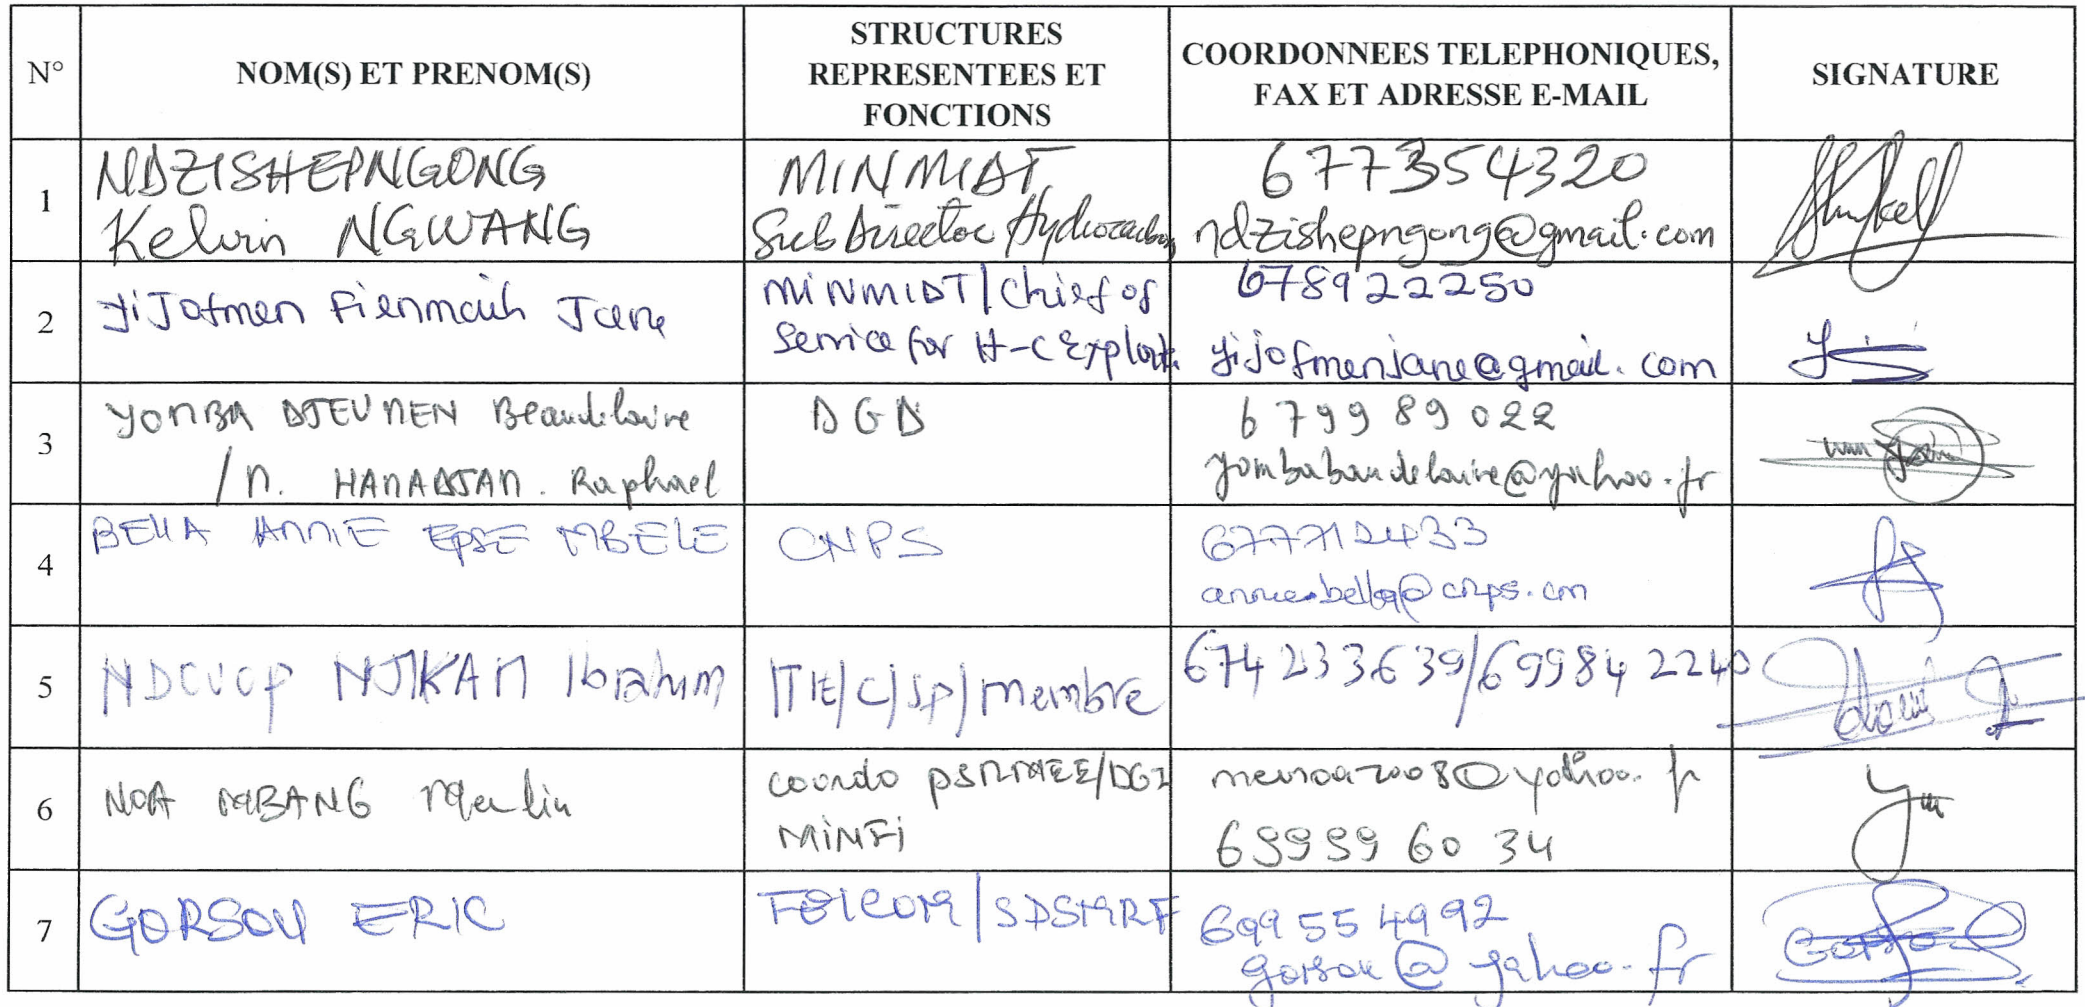 N°
NOM(S) ET PRENOM(S)
STRUCTURES
REPRESENTEES ET
FONCTIONS
COORDONNEES TELEPHONIQUES,
FAX ET ADRESSE E-MAIL
SIGNATURE
1
NDZISHEPNGONG
Kelvin NGWANG
MINMIDT
Sub Director Hydrocarbons
677354320
ndzishepngong@gmail.com
2
Yijofmen Fienmaih Jane
MINMIDT/Chief of
Service for H-C Exploit.
678922250
yijofmenjane@gmail.com
3
YOMBA DJEUMEN Beaudelaire
/M. HAMADJAM. Raphael
DGD
6 799 89 022
yombabaudelaire@yahoo.fr
4
BELLA ANNIE EPSE MBELE
CNPS
677712433
annie.bella@cnps.cm
5
NJIKAM Ibrahim
ITIE/C/SP/membre
674 233 639/69984 2240
6
NOA MBANG Merlin
coordo PSRMEE/DGI
MINFI
mernoa2008@yahoo.fr
69999 60 34
7
GORSOU ERIC
FEICOM/SDSMRF
699554992
gorsou@yahoo.fr